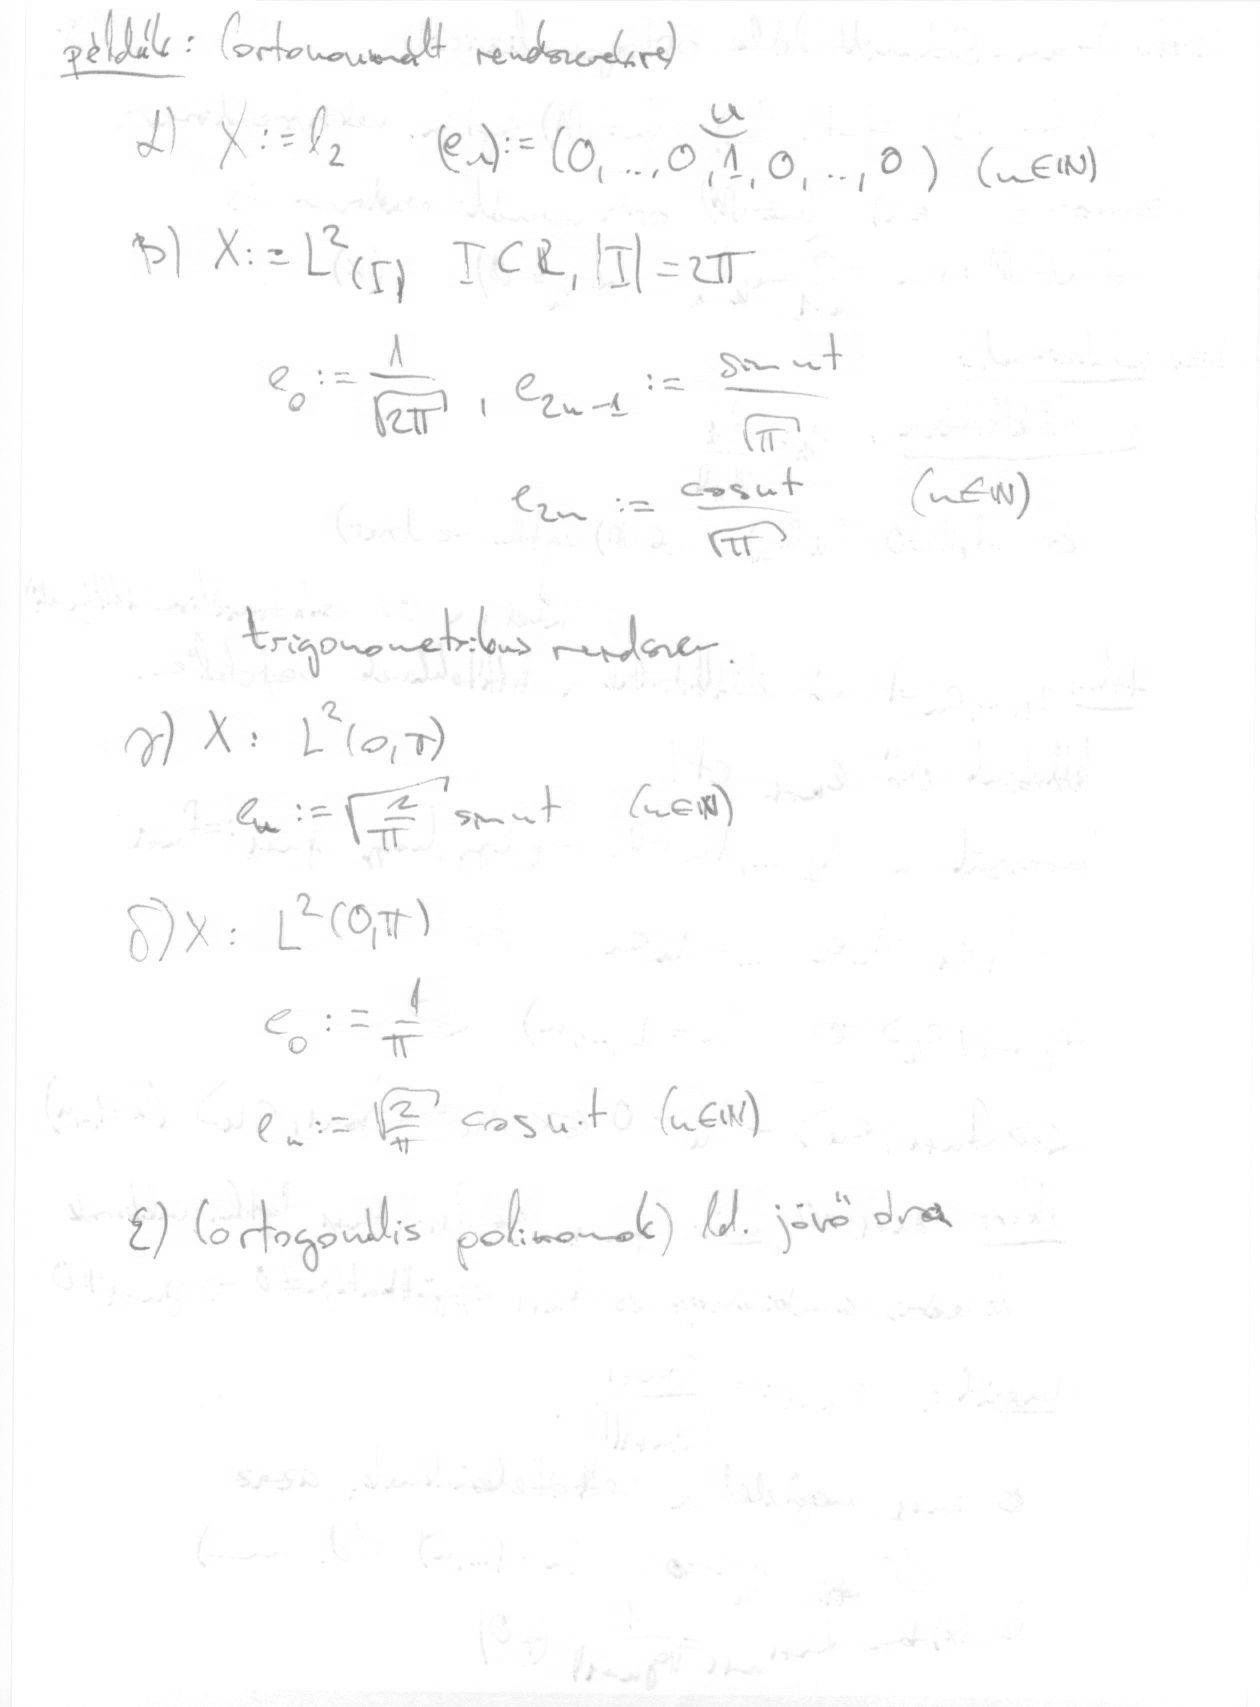 példák: (ortonormált rendszerekre)
α) X := l₂ (eₙ) := (0, ..., 0, 1, 0, ..., 0) (n∈ℕ)
n
β) X := L²(I) I ⊂ R, |I| = 2π
e₀ := 1/√(2π), e₂ₙ₋₁ := sin nt/√π
e₂ₙ := cos nt/√π (n∈ℕ)
trigonometrikus rendszer.
γ) X: L²(0,π)
eₙ := √(2/π) sin nt (n∈ℕ)
δ) X: L²(0,π)
e₀ := 1/π
eₙ := √(2/π) cos n·t (n∈ℕ)
ε) (ortogonális polinomok) ld. jövő óra